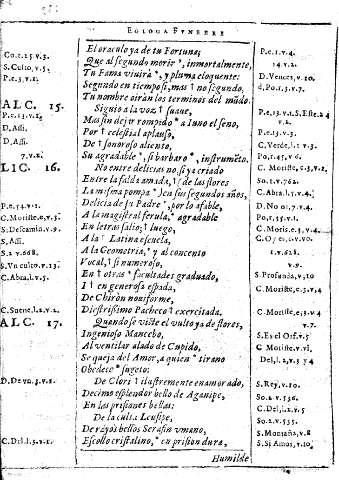 EGLOGA FVNEBRE
El oraculo ya de tu Fortuna;
Que al segundo morir, inmortalmente,
Tu Fama viuirà, y pluma eloquente:
Segundo en tiempo sí, mas no segundo.
Tu nombre oirán los terminos del mũdo.
Siguio a la voz, suaue,
Mas sin dejar rompido a Iuno el seno,
Por celestial aplauso,
De sonoroso aliento,
Su agradable, si barbaro, instrumẽto.
No entre delicias no, si ya criado
Entre la falda amada, de las flores
La misma pompa en sus segundos años,
Delicia de su Padre, por lo afable,
A la magistral ferula, agradable
En letras salio; luego,
A la Latina escuela,
A la Geometria, y al concento
Vocal, si numeroso,
En otras facultades graduado,
I en generosa espada,
De Chiron
Diestrissimo Pacheco exercitada.
Quando se viste el vulto ya de flores,
Ingenioso Mancebo,
Al ventilar alado de Cupido,
Se queja del Amor, a quien tirano
Obedece sugeto:
De Cloris ilustremente enamorado,
Decimo esplendor bello de Aganipe,
En las prisiones bellas:
De la culta Leusipe,
De rayos bellos Serafin vmano,
Escollo cristalino, en prision dura,
Humilde
Co.e.25 v.3.
S. Culto, v.5.
P.e.3, v.12.
ALC. 15.
P.e.13. v.12.
D. Assi.
D. Assi,
7. v.2.
LIC. 16.
P.e.74. v.1.
C. Moriste, e.v.5.
S. Descamio, v.9.
S. Assi.
S. Vn culto. v.13.
C. Abra, l. v.5.
C. Suene, l.2. v.2
ALC. 17.
D. Deua. 3. v.2.
C. Del, l.5. v.1.
P.e.1. v.4.
14. v.2.
D. Vences, v.10.
d, Po.1.3. v.7.
P.e.13. v.3.
C. Verde, l.1. v.3.
Po, l.45. v.6.
So.1. v.762.
C. Abra, l.1. v.4.
D. No oi, 7. v.4.
Po, l.55. v.1.
t. v.628.
v.9.
S. Profunda, v,10
7.
S. Es el Orf. v.5
C. Moriste, v.15,
Del, l.2, v.3 y 4
S. Rey, v.10.
So.2. v.536.
C. Del, l.2. v.5
So.2. v.535.
S. Montaña, v.8
S. Si Amor, v.10.